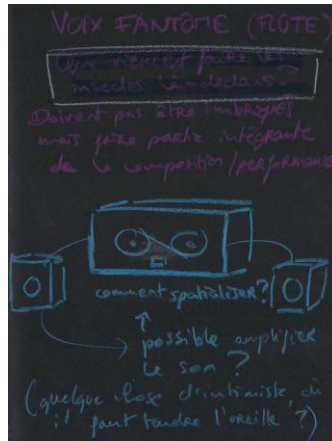 VOIX FANTÔME (FLÛTE)
Que viennent faire les
insectes là-dedans
Doivent pas être imbriqués
mais faire partie intégrante
de la composition/performance
comment spatialiser?
possible amplifier
le son ?
(quelque chose d'intimiste où
il faut tendre l'oreille ?)